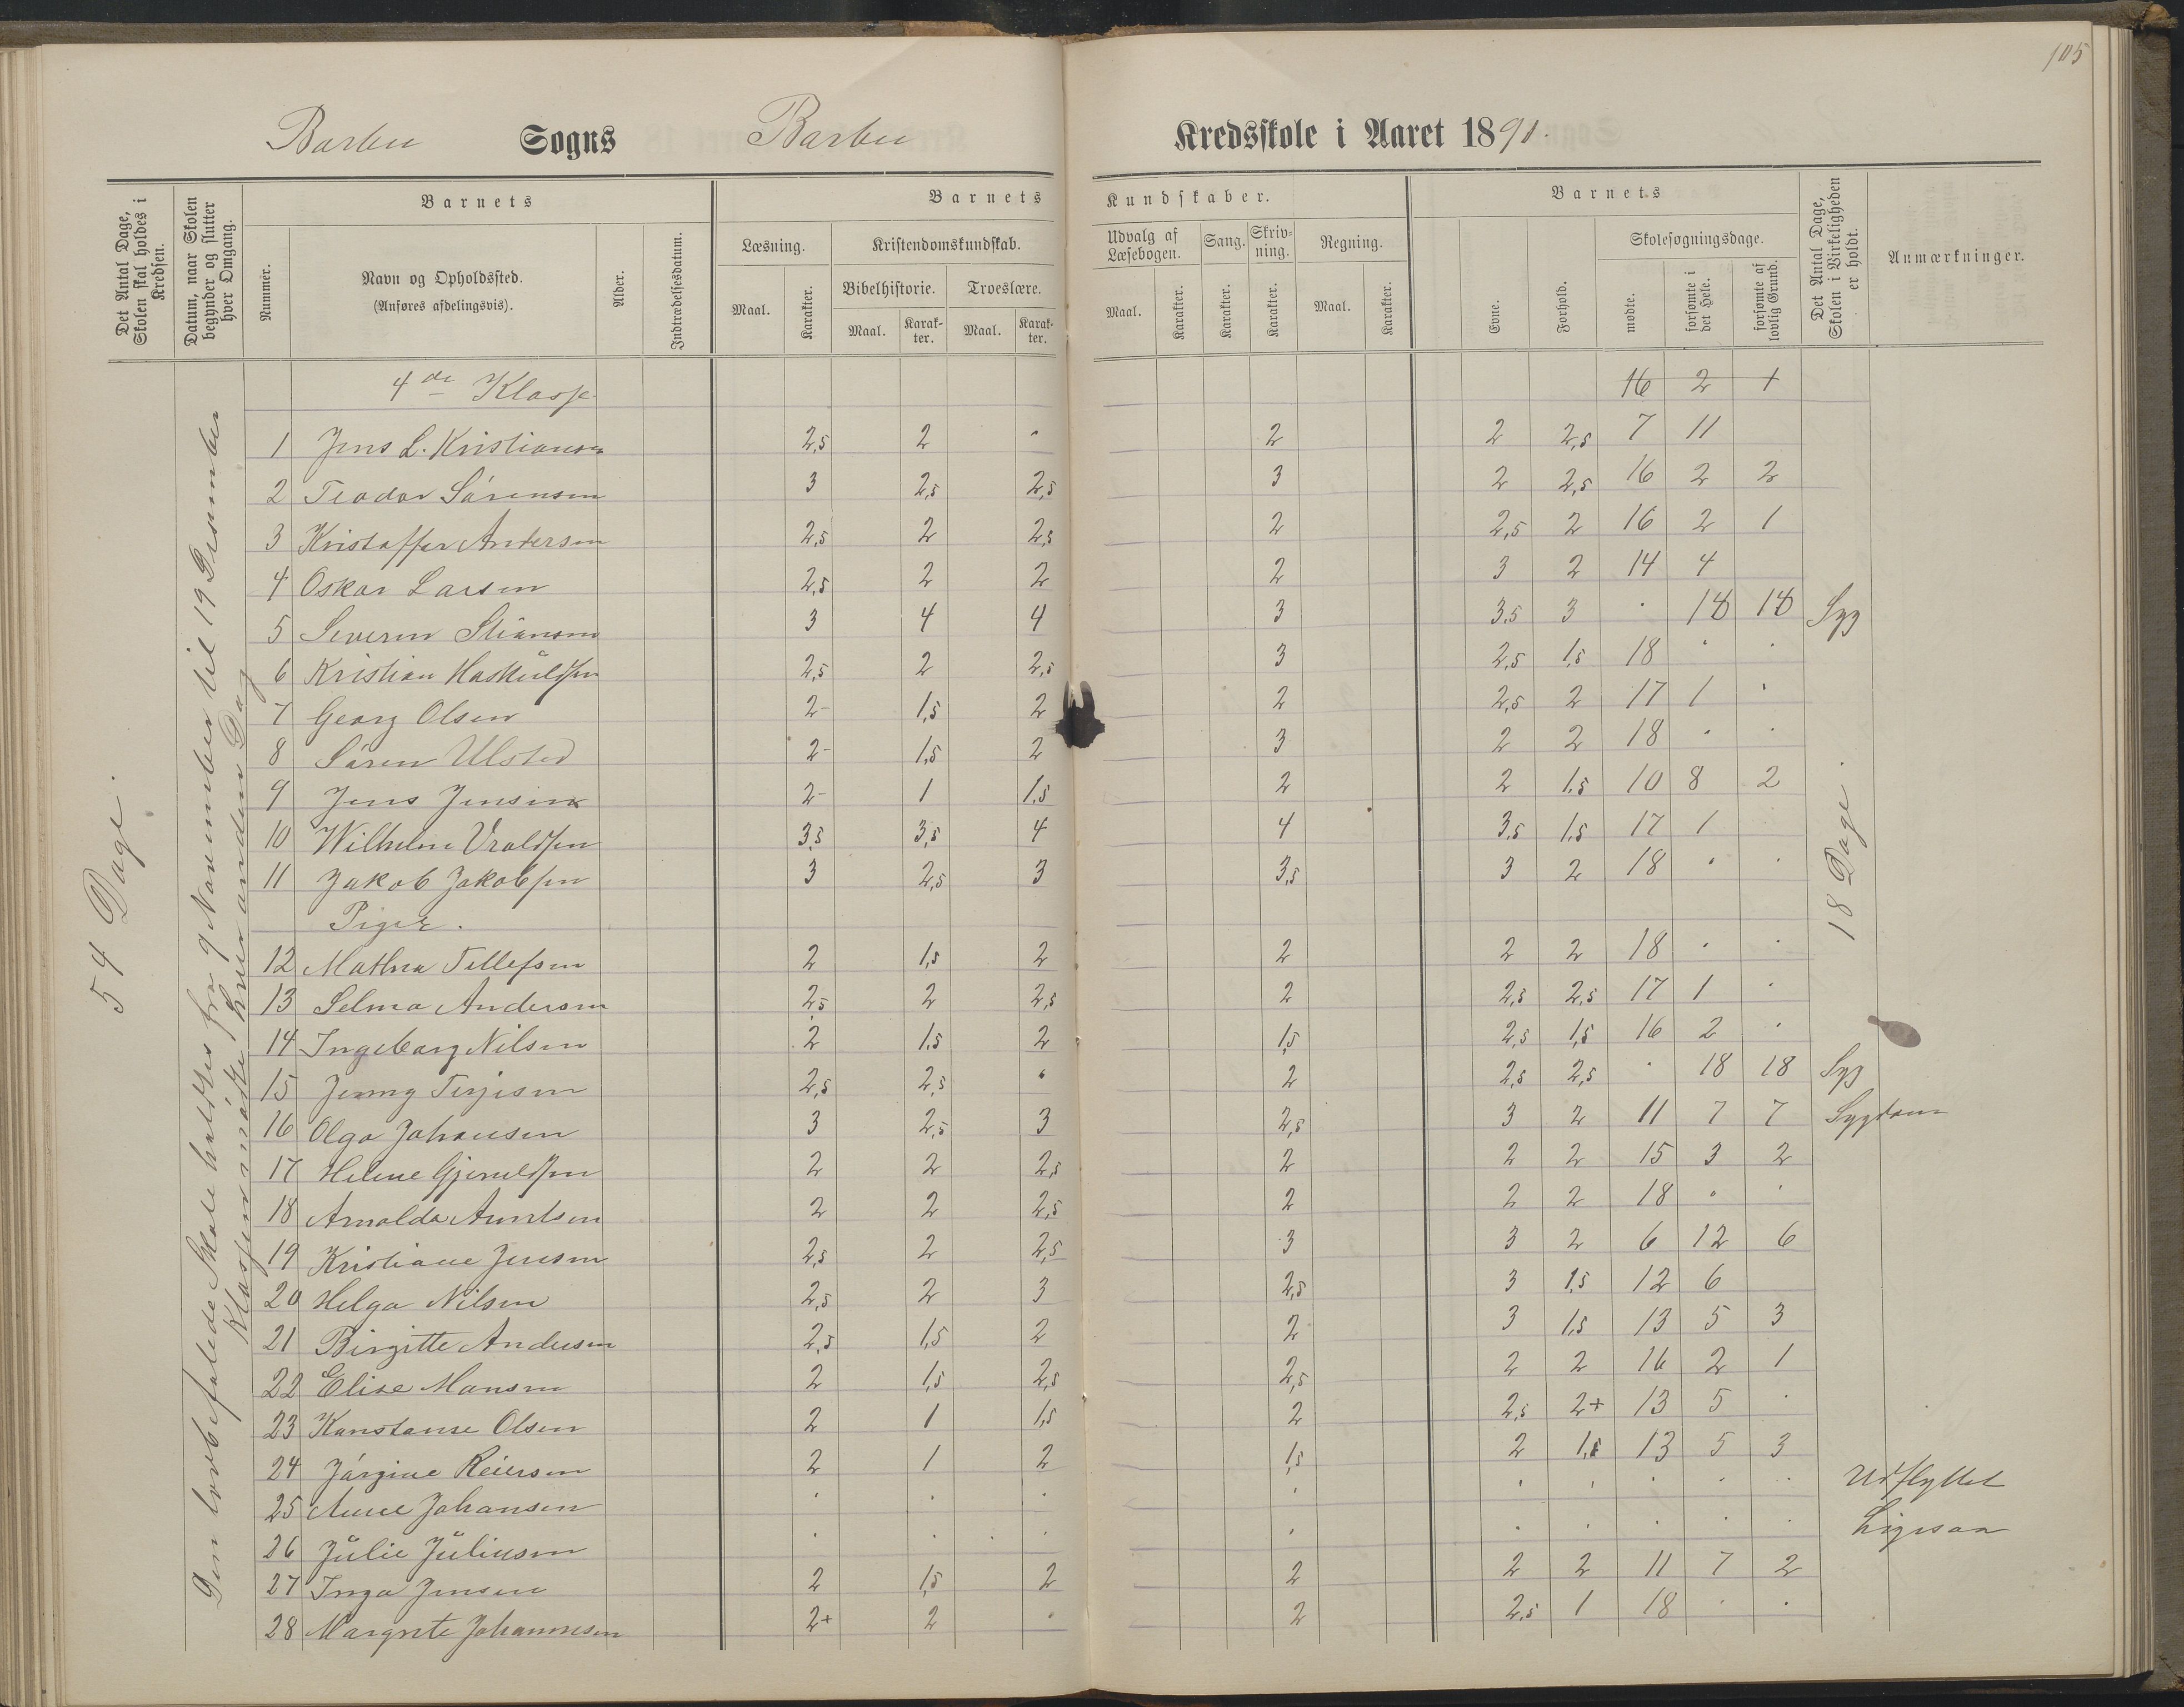 105
Barbu Sogns Barbu Kredsskole i Aaret 1891.
Det Antal Dage, Skolen skal holdes i Kredsen.
Datum, naar Skolen begynder og slutter hver Omgang.
Barnets
Nummer.
Navn og Opholdssted.
(Anføres afdelingsvis).
Alder.
Indtrædelsesdatum.
Barnets Kundskaber.
Læsning.
Maal.
Karakter.
Kristendomskundskab.
Bibelhistorie.
Maal.
Karakter.
Troeslære.
Maal.
Karakter.
Udvalg af Læsebogen.
Maal.
Karakter.
Sang.
Karakter.
Skrivning.
Karakter.
Regning.
Maal.
Karakter.
Barnets
Evne.
Forhold.
Skolesøgningsdage.
mødte.
forsømte i det Hele.
forsømte af lovlig Grund.
Det Antal Dage, Skolen i Virkeligheden er holdt.
Anmærkninger.
54 Dage.
Den lovbefalede Skole holdtes fra 9 November til 19 Desember
Klassen mødte hver anden Dag
18 Dage.
4de Klasse 16 2 1
1 Jens L. Kristiansen 2,5 2 · 2 2 2,5 7 11
2 Teodor Sørensen 3 2,5 2,5 3 2 2,5 16 2 2
3 Kristoffer Andersen 2,5 2 2,5 2 2,5 2 16 2 1
4 Oskar Larsen 2,5 2 2 2 3 2 14 4
5 Severin Stiansen 3 4 4 3 3,5 3 · 18 18 Syg
6 Kristian Haskuldsen 2,5 2 2,5 3 2,5 1,5 18 · ·
7 Georg Olsen 2- 1,5 2 2 2,5 2 17 1 ·
8 Søren Ulsted 2- 1,5 2 3 2 2 18 · ·
9 Jens Jensen 2- 1 1,5 2 2 1,5 10 8 2
10 Wilhelm Vroldsen 3,5 3,5 4 4 3,5 1,5 17 1
11 Jakob Jakobsen 3 2,5 3 3,5 3 2 18 · ·
Piger.
12 Mathea Tellefsen 2 1,5 2 2 2 2 18 · ·
13 Selma Andersen 2,5 2 2,5 2 2,5 2,5 17 1 ·
14 Ingeborg Nilsen 2 1,5 2 1,5 2,5 1,5 16 2 ·
15 Jenny Terjesen 2,5 2,5 · 2 2,5 2,5 · 18 18 Syg
16 Olga Johansen 3 2,5 3 2,5 3 2 11 7 7 Sygdom
17 Helene Gjeruldsen 2 2 2,5 2 2 2 15 3 2
18 Arnolda Arntsen 2 2 2,5 2 2 2 18 · ·
19 Kristiane Jensen 2,5 2 2,5 3 3 2 6 12 6
20 Helga Nilsen 2,5 2 3 2,5 3 1,5 12 6
21 Birgitte Andersen 2,5 1,5 2 2 3 1,5 13 5 3
22 Elise Hansen 2 1,5 2,5 2,5 2 2 16 2 1
23 Konstanse Olsen 2 1 1,5 2 2,5 2+ 13 5 ·
24 Jørgine Reiersen 2 1 2 1,5 2 1,5 13 5 3
25 Anne Johansen · · · · · · · · · Udflyttet
26 Julie Juliusen · · · · · · · · · Ligesaa
27 Inga Jensen 2 1,5 2 2 2 2 11 7 2
28 Margrete Johannesen 2+ 2 · 2 2,5 1 18 · ·